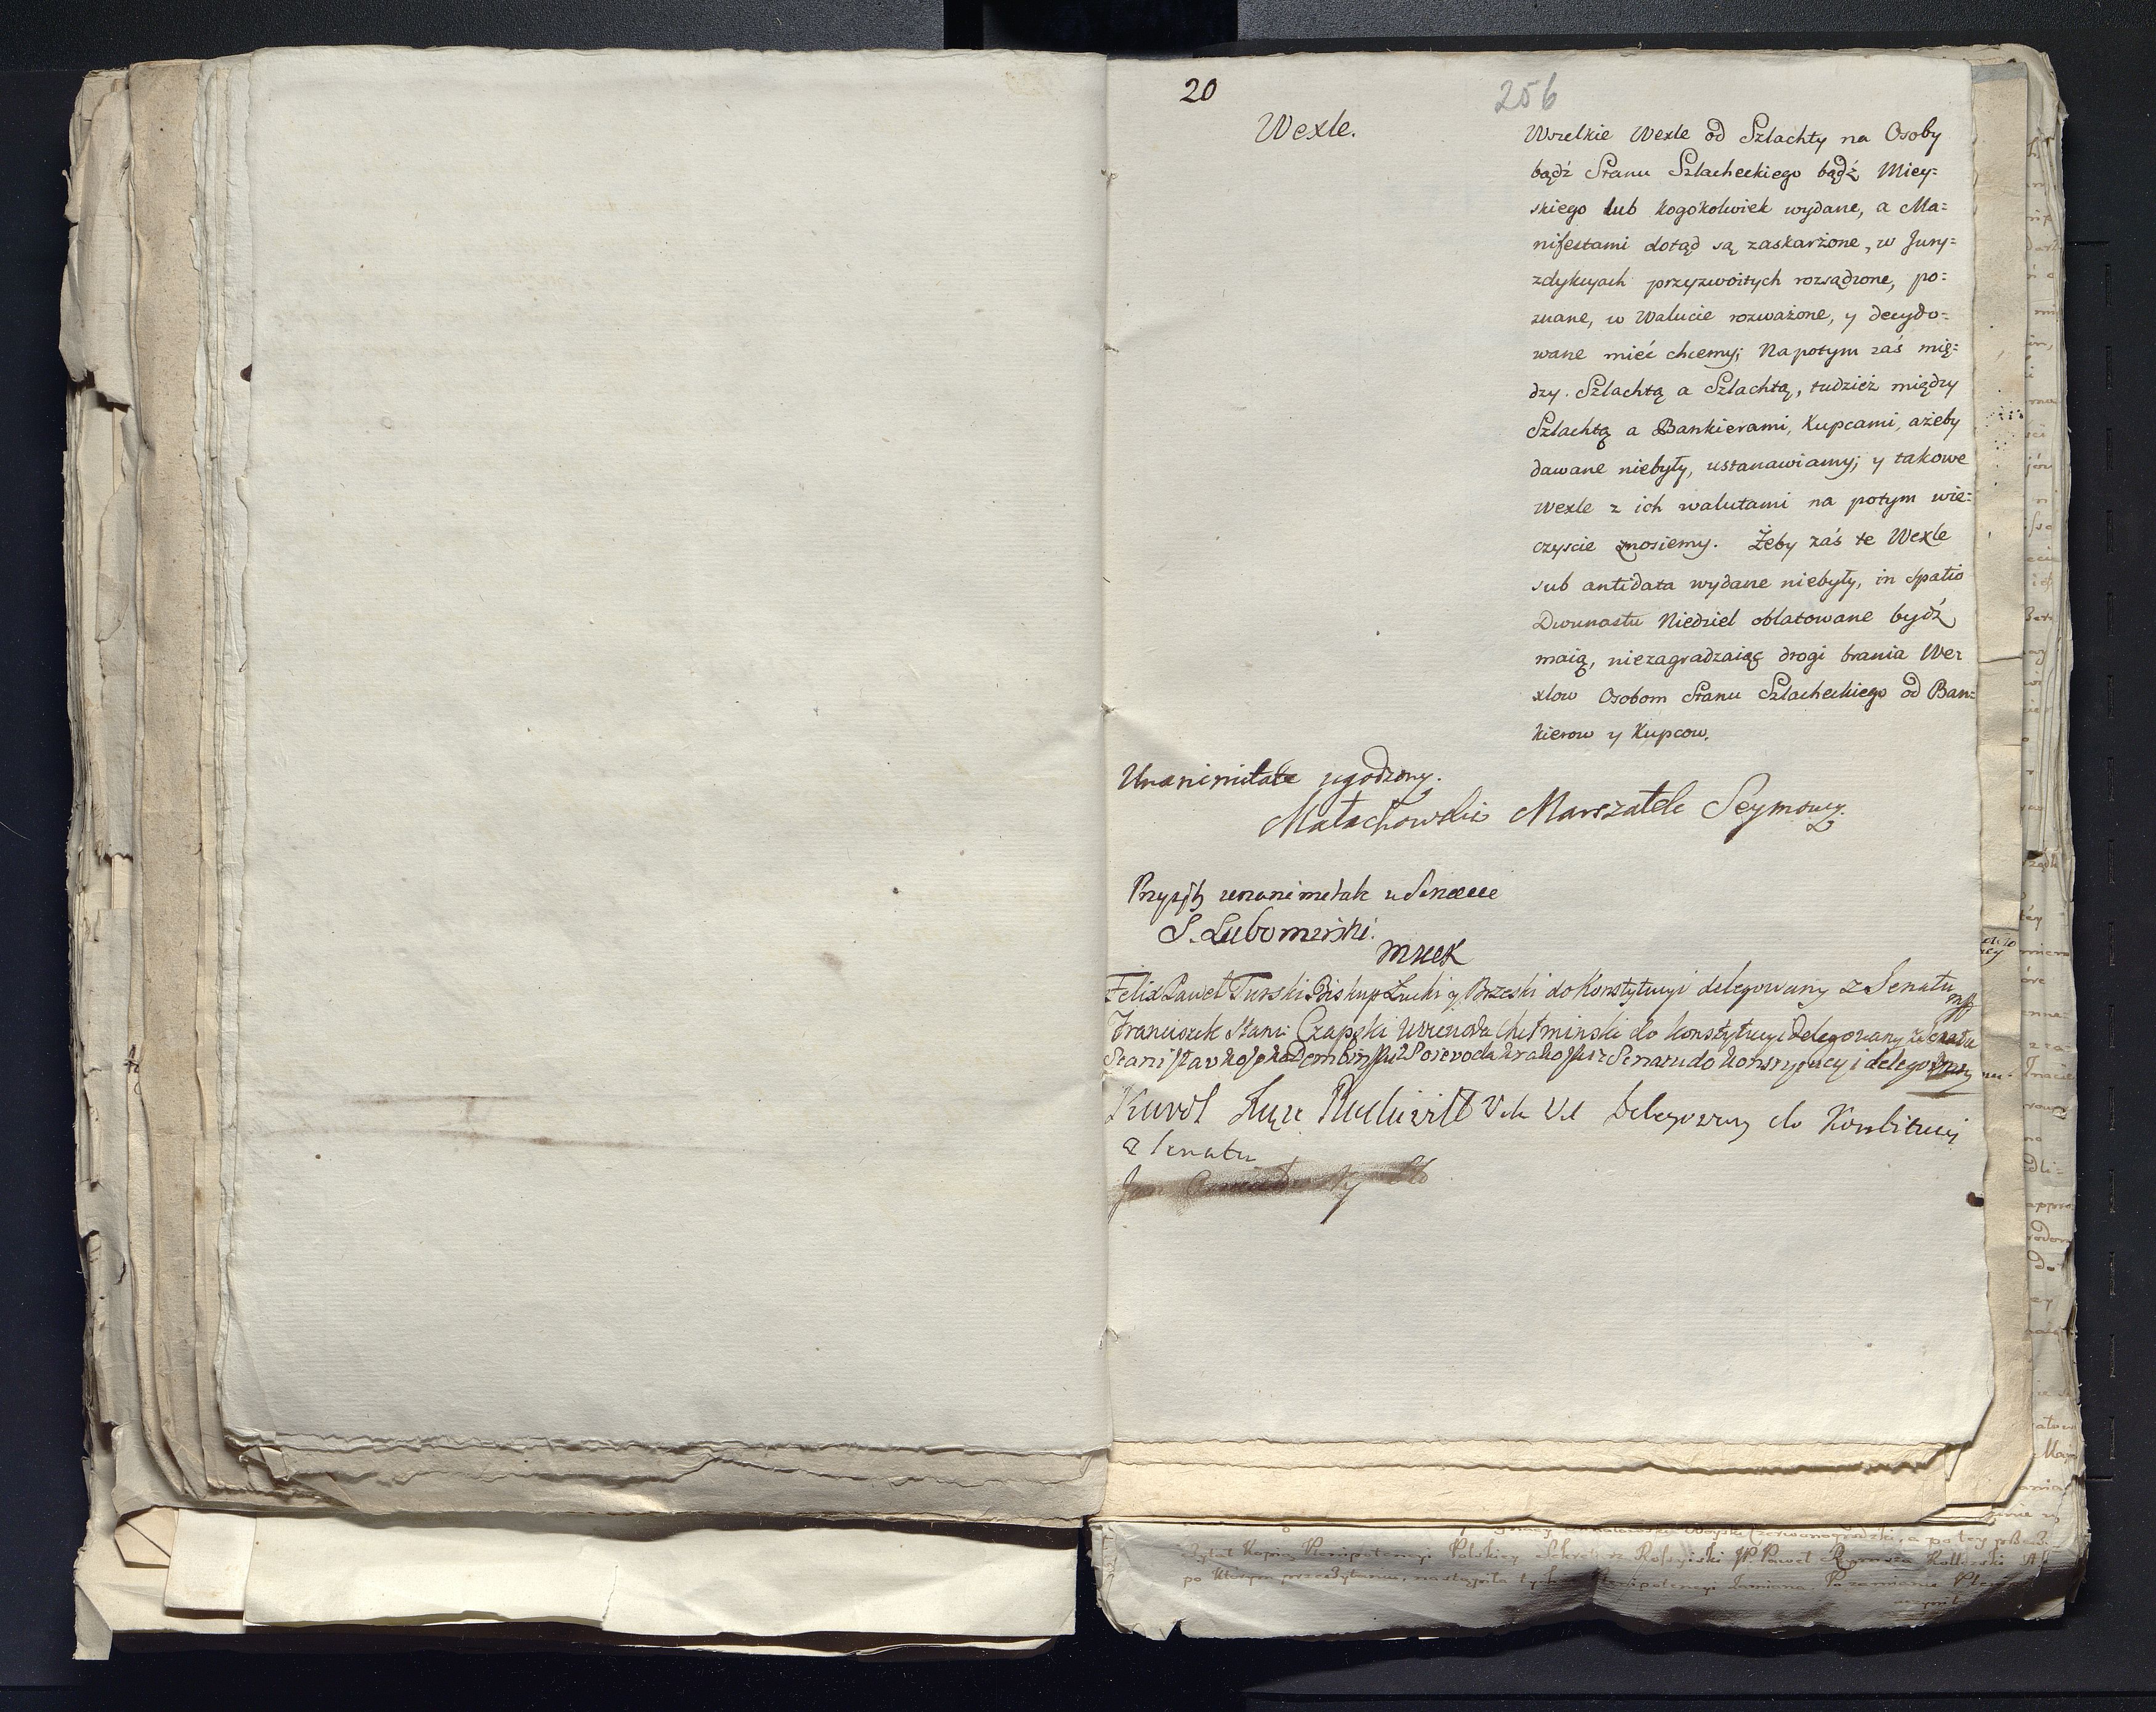 20
256
Wexle.
Wszelkie Wexle od Szlachty na Osoby
bądź Stanu Szlacheckiego bądź Miey=
skiego lub kogokolwiek wydane, a Ma=
nifestami dotąd są zaskarżone, w Jury=
zdykcyach przyzwoitych rozsądzone, po=
znane, w Walucie rozważone, y decydo=
wane mieć chcemy; Napotym zaś mię=
dzy Szlachtą a Szlachtą, tudzież między
Szlachtą a Bankierami, Kupcami, ażeby
dawane niebyły, ustanawiamy; y takowe
Wexle z ich walutami na potym wie=
czyscie znosiemy. Żeby zaś te Wexle
sub antidata wydane niebyły, in spatio
Dwunastu Niedziel oblatowane bydź
maią, niezagradzaiąc drogi brania We=
xlow Osobom Stanu Szlacheckiego od Ban=
kierow y Kupcow.
Unanimitate zgodzony.
Małachowski Marszałek Seymowy
Przyięty unanimitate w Senacie
S. Lubomirski
MWK
Felix Paweł Turski Biskup Łucki y Brzeski do Konstytucyi delegowany z Senatu mp
Franciszek Stani: Czapski Woiewoda Chełminski do konstytucyi Delegowany z Senatu
Stanisław Dembinski Woiewoda Krakowski z Senatu do konstytucyi delegowany
Karol Xże Radziwiłł Delegowany do Konstitucyi
z Senatu